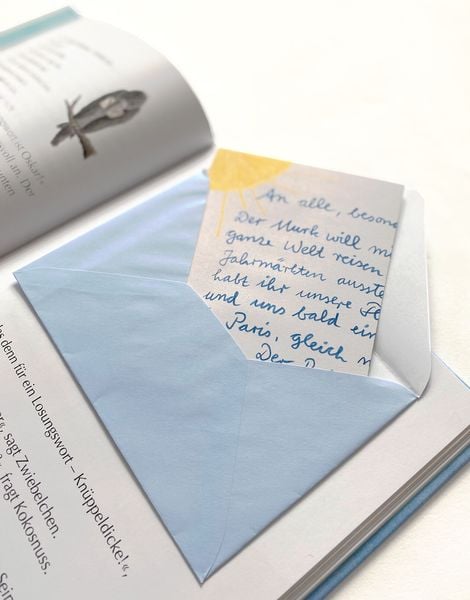 ngswort ist Oskar!«
voll an. Der
unten
An alle, besond
Der Murk will m
ganze Welt reisen
Jahrmärkten ausste
habt ihr unsere Fe
und uns bald ein
Paris, gleich n
Der P
as denn für ein Losungswort – Knüppeldicke!«,
er«, sagt Zwiebelchen.
fragt Kokosnuss.
Sein